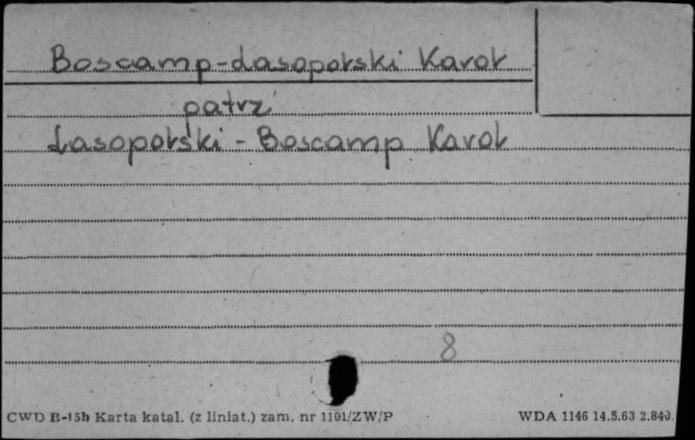 Boscamp-Lasopolski Karol
patrz
Lasopolski - Boscamp Karol
8
CWD B-15b Karta katal. (z liniat.) zam. nr 1101/ZW/P WDA 1146 14.5.63 2.840.